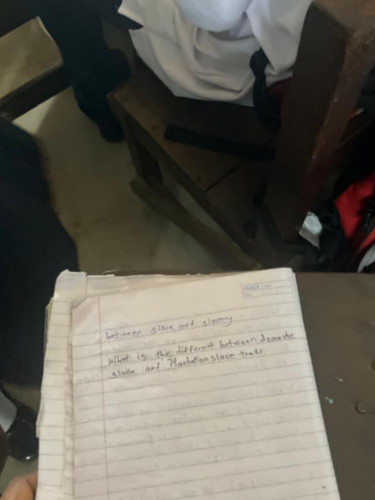 between slave and slavery
What is the different between domestic
slave and Plantation slave trade